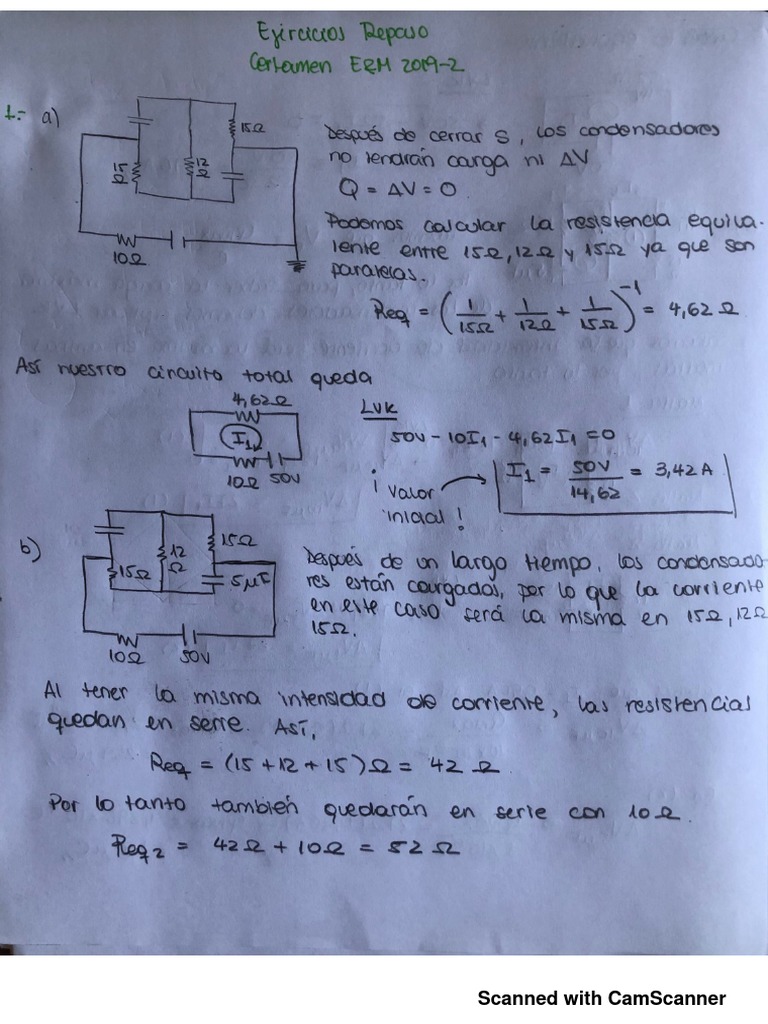 Ejercicios Repaso
Certamen ERM 2019-2
1.- a)
15Ω
15
Ω
12
Ω
10Ω
Después de cerrar S, los condensadores
no tendrán carga ni ΔV
Q = ΔV = 0
Podemos calcular la resistencia equiva-
lente entre 15Ω, 12Ω y 15Ω ya que son
paralelas.
Req = (1/15Ω + 1/12Ω + 1/15Ω)⁻¹ = 4,62 Ω
Así nuestro circuito total queda
4,62Ω
I₁
10Ω 50V
LVK
50V - 10I₁ - 4,62I₁ = 0
¡ Valor
inicial !
I₁ = 50V/14,62 = 3,42 A
b)
15Ω
12
Ω
15Ω
5μF
10Ω 50V
Después de un largo tiempo, los condensado-
res están cargados, por lo que la corriente
en este caso será la misma en 15Ω, 12Ω
15Ω.
Al tener la misma intensidad de corriente, las resistencias
quedan en serie. Así,
Req = (15 + 12 + 15) Ω = 42 Ω
Por lo tanto también quedarán en serie con 10Ω.
Req₂ = 42Ω + 10Ω = 52 Ω
Scanned with CamScanner